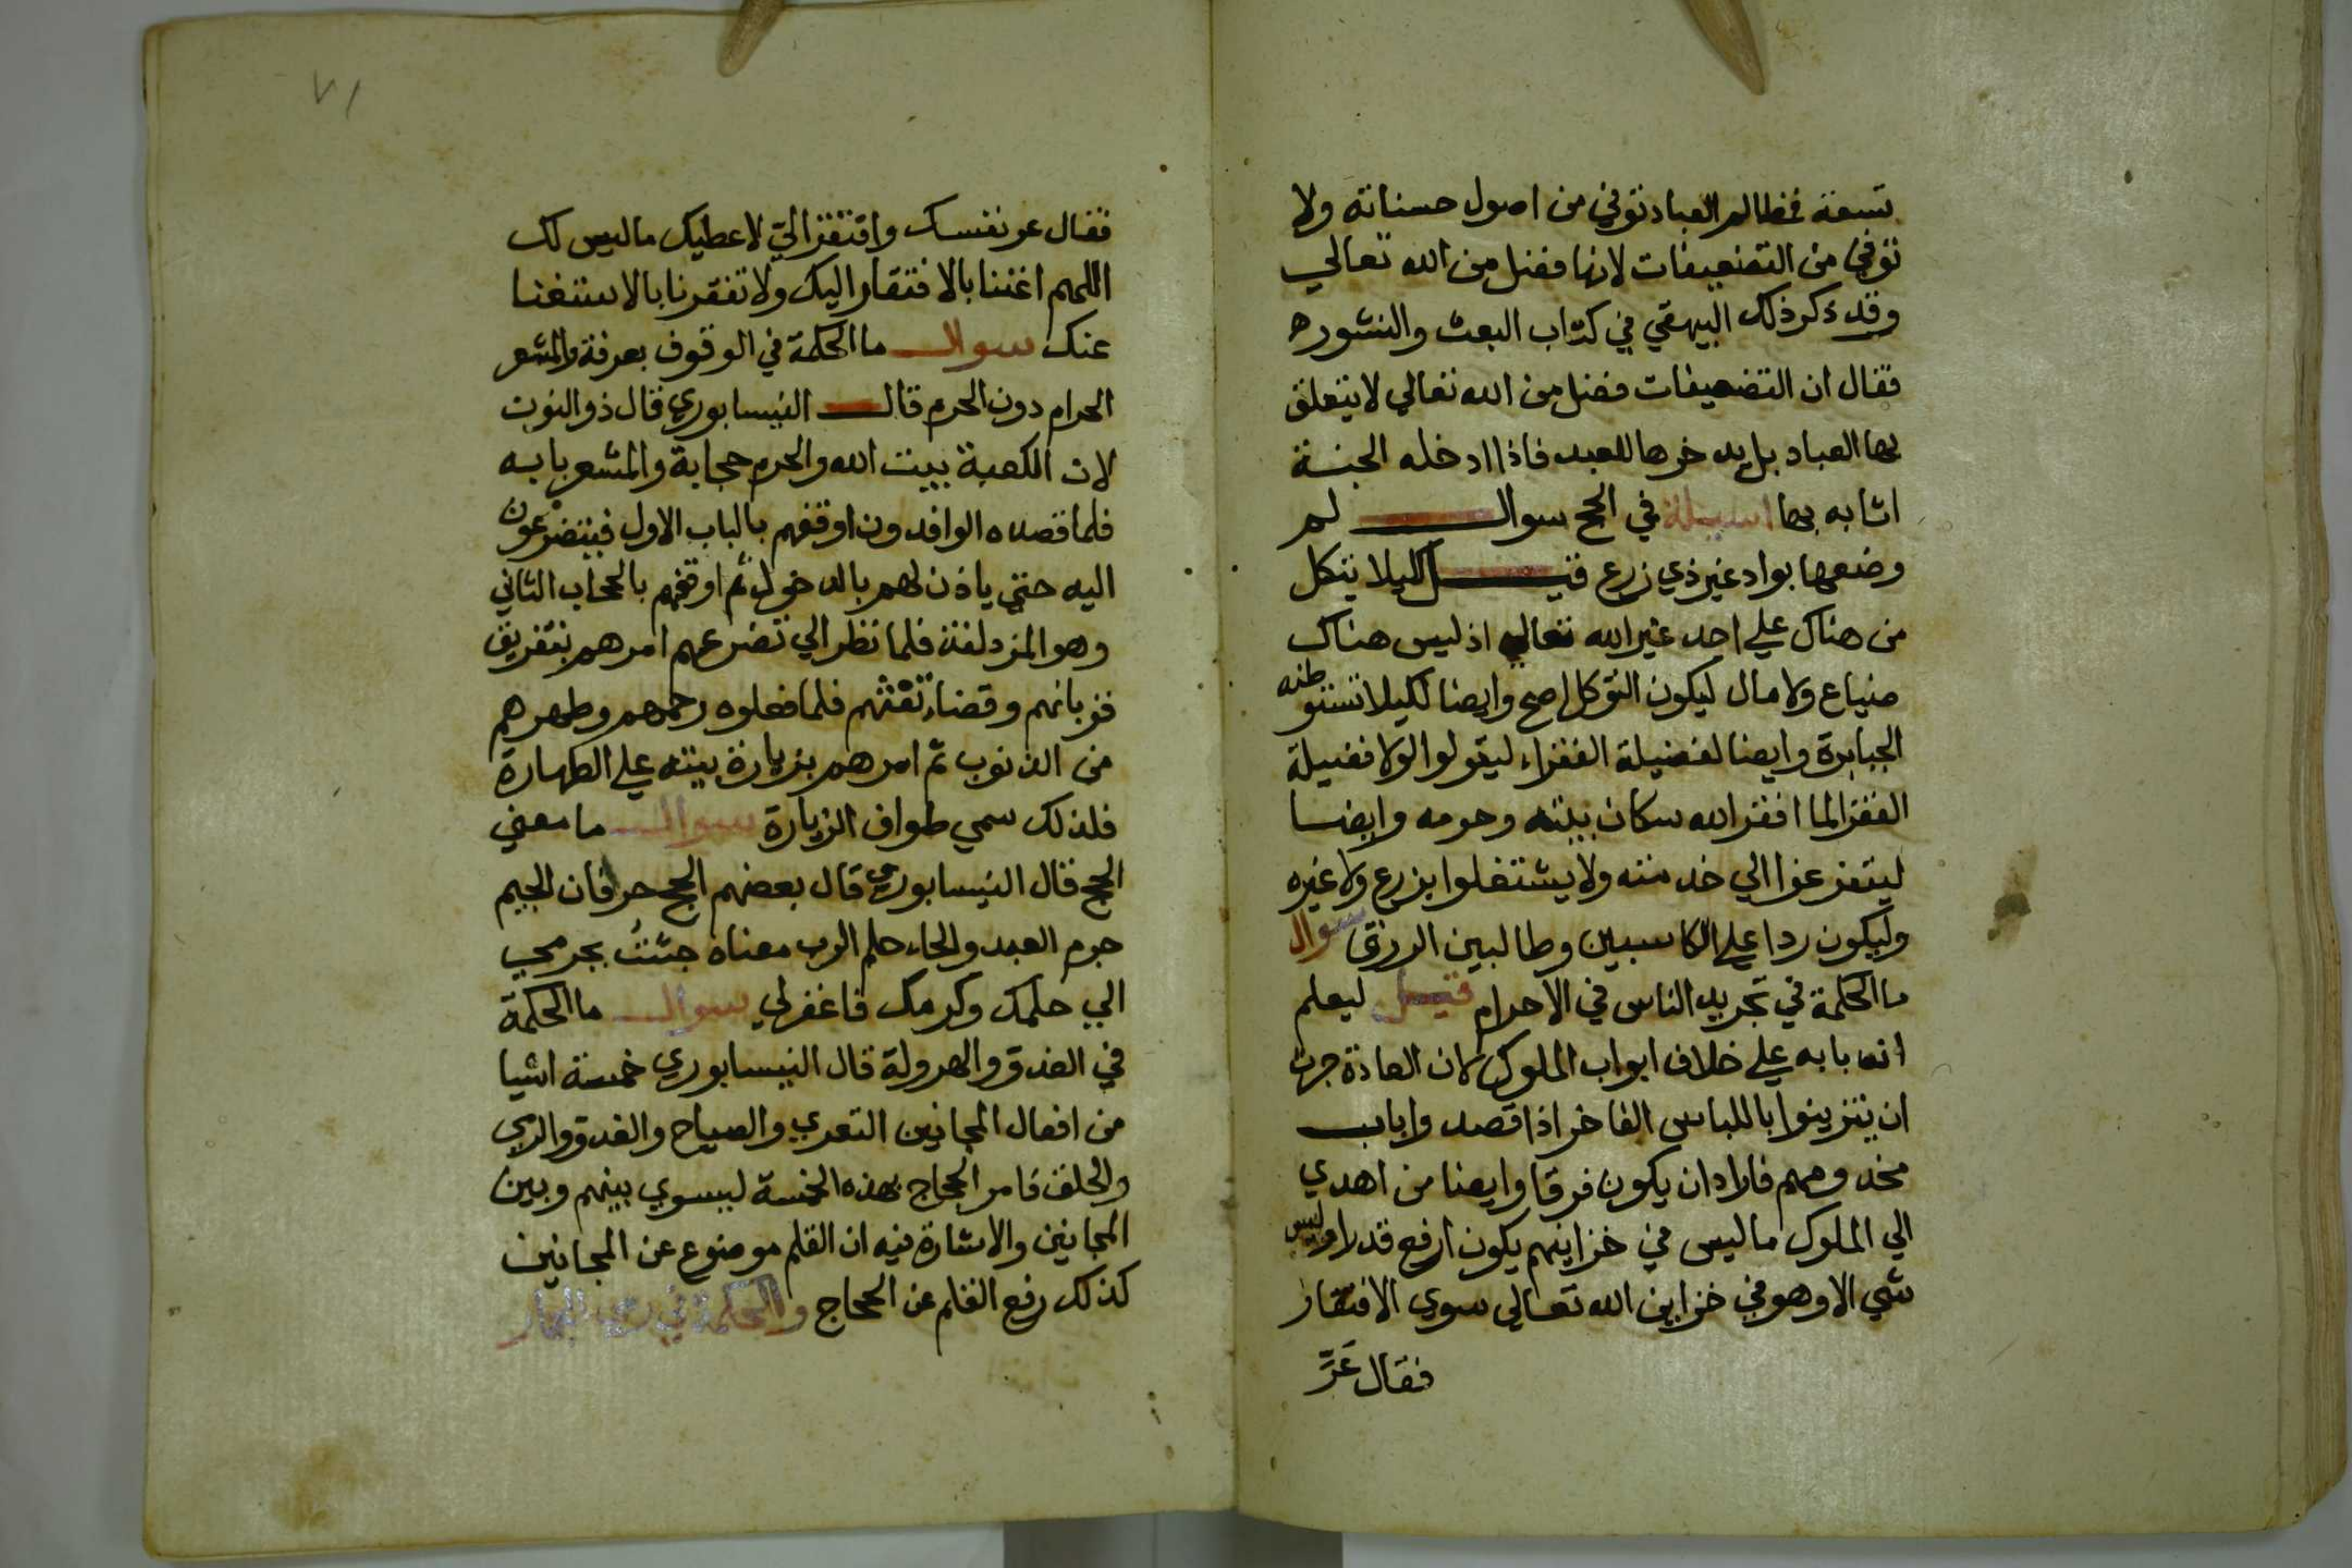 تسعة فمظالم العباد توفي من اصول حسناته ولا
توفي من التضعيفات لانها فضل من الله تعالي
وقد ذكر ذلك البيهقي في كتاب البعث والنشور ه
فقال ان التضعيفات فضل من الله تعالي لا يتعلق
بها العباد بل يدخرها للعبد فاذا ادخله الجنة
اثابه بها اسيلة في الحج سوال لم
وضعها بواد غير ذي زرع قيل لكيلا يتكل
من هناك علي احد غير الله تعالي اذ ليس هناك
ضياع ولا مال ليكون التوكل اصح وايضا لكيلا تستوطنه
الجبابرة وايضا لفضيلة الفقراء ليقولوا لولا فضيلة
الفقر لما افقر الله سكان بيته وحرمه وايضا
ليتفرغوا الي خدمته ولا يشتغلوا بزرع ولا غيره
وليكون ردا علي الكاسبين وطالبين الرزق سوال
ما الحكمة في تجريد الناس في الاحرام قيل ليعلم
انه بابه علي خلاف ابواب الملوك لان العادة جرت
ان يتزينوا باللباس الفاخر اذا قصدوا باب
مخدومهم فاراد ان يكون فرقا وايضا من اهدي
الي الملوك ما ليس في خزاينهم يكون ارفع قدرا وليس
شي الا وهو في خزاين الله تعالي سوي الافتقار
فقال عَرِّ
٧١
فقال عر نفسك وافتقر اليّ لاعطيك ما ليس لك
اللهم اغننا بالافتقار اليك ولا تفقرنا بالاستغنا
عنك سوال ما الحكمة في الوقوف بعرفة والمشعر
الحرام دون الحرم قال النيسابوري قال ذو النون
لان الكعبة بيت الله والحرم حجابة والمشعر بابه
فلما قصده الوافدون اوقفهم بالباب الاول فيتضرعون
اليه حتي ياذن لهم بالدخول ثم اوقفهم بالحجاب الثاني
وهو المزدلفة فلما نظر الي تضرعهم امرهم بتفريق
قربانهم وقضاء تفثهم فلما فعلوه رحمهم وطهرهم
من الذنوب ثم امرهم بزيارة بيته علي الطهارة
فلذلك سمي طواف الزيارة سوال ما معني
الحج قال النيسابوري قال بعضهم الحج حرفان الجيم
جرم العبد والحاء حلم الرب معناه جئتُ بجرمي
الي حلمك وكرمك فاغفر لي سوال ما الحكمة
في العدو والهرولة قال النيسابوري خمسة اشيا
من افعال المجانين التعري والصياح والعدو والرمي
والحلق فامر الحجاج بهذه الخمسة ليسوي بينهم وبين
المجانين والاشارة فيه ان القلم موضوع عن المجانين
كذلك رفع القلم عن الحجاج والحكمة في رمي الجمار